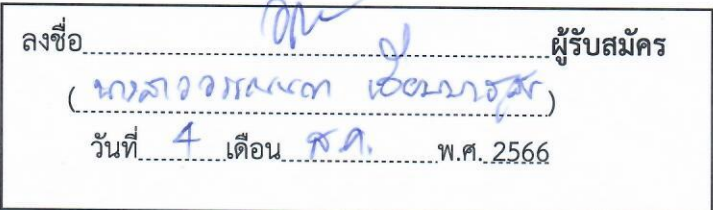 ลงชื่อ ผู้รับสมัคร
(นางสาว)
วันที่ 4 เดือน ส.ค. พ.ศ. 2566